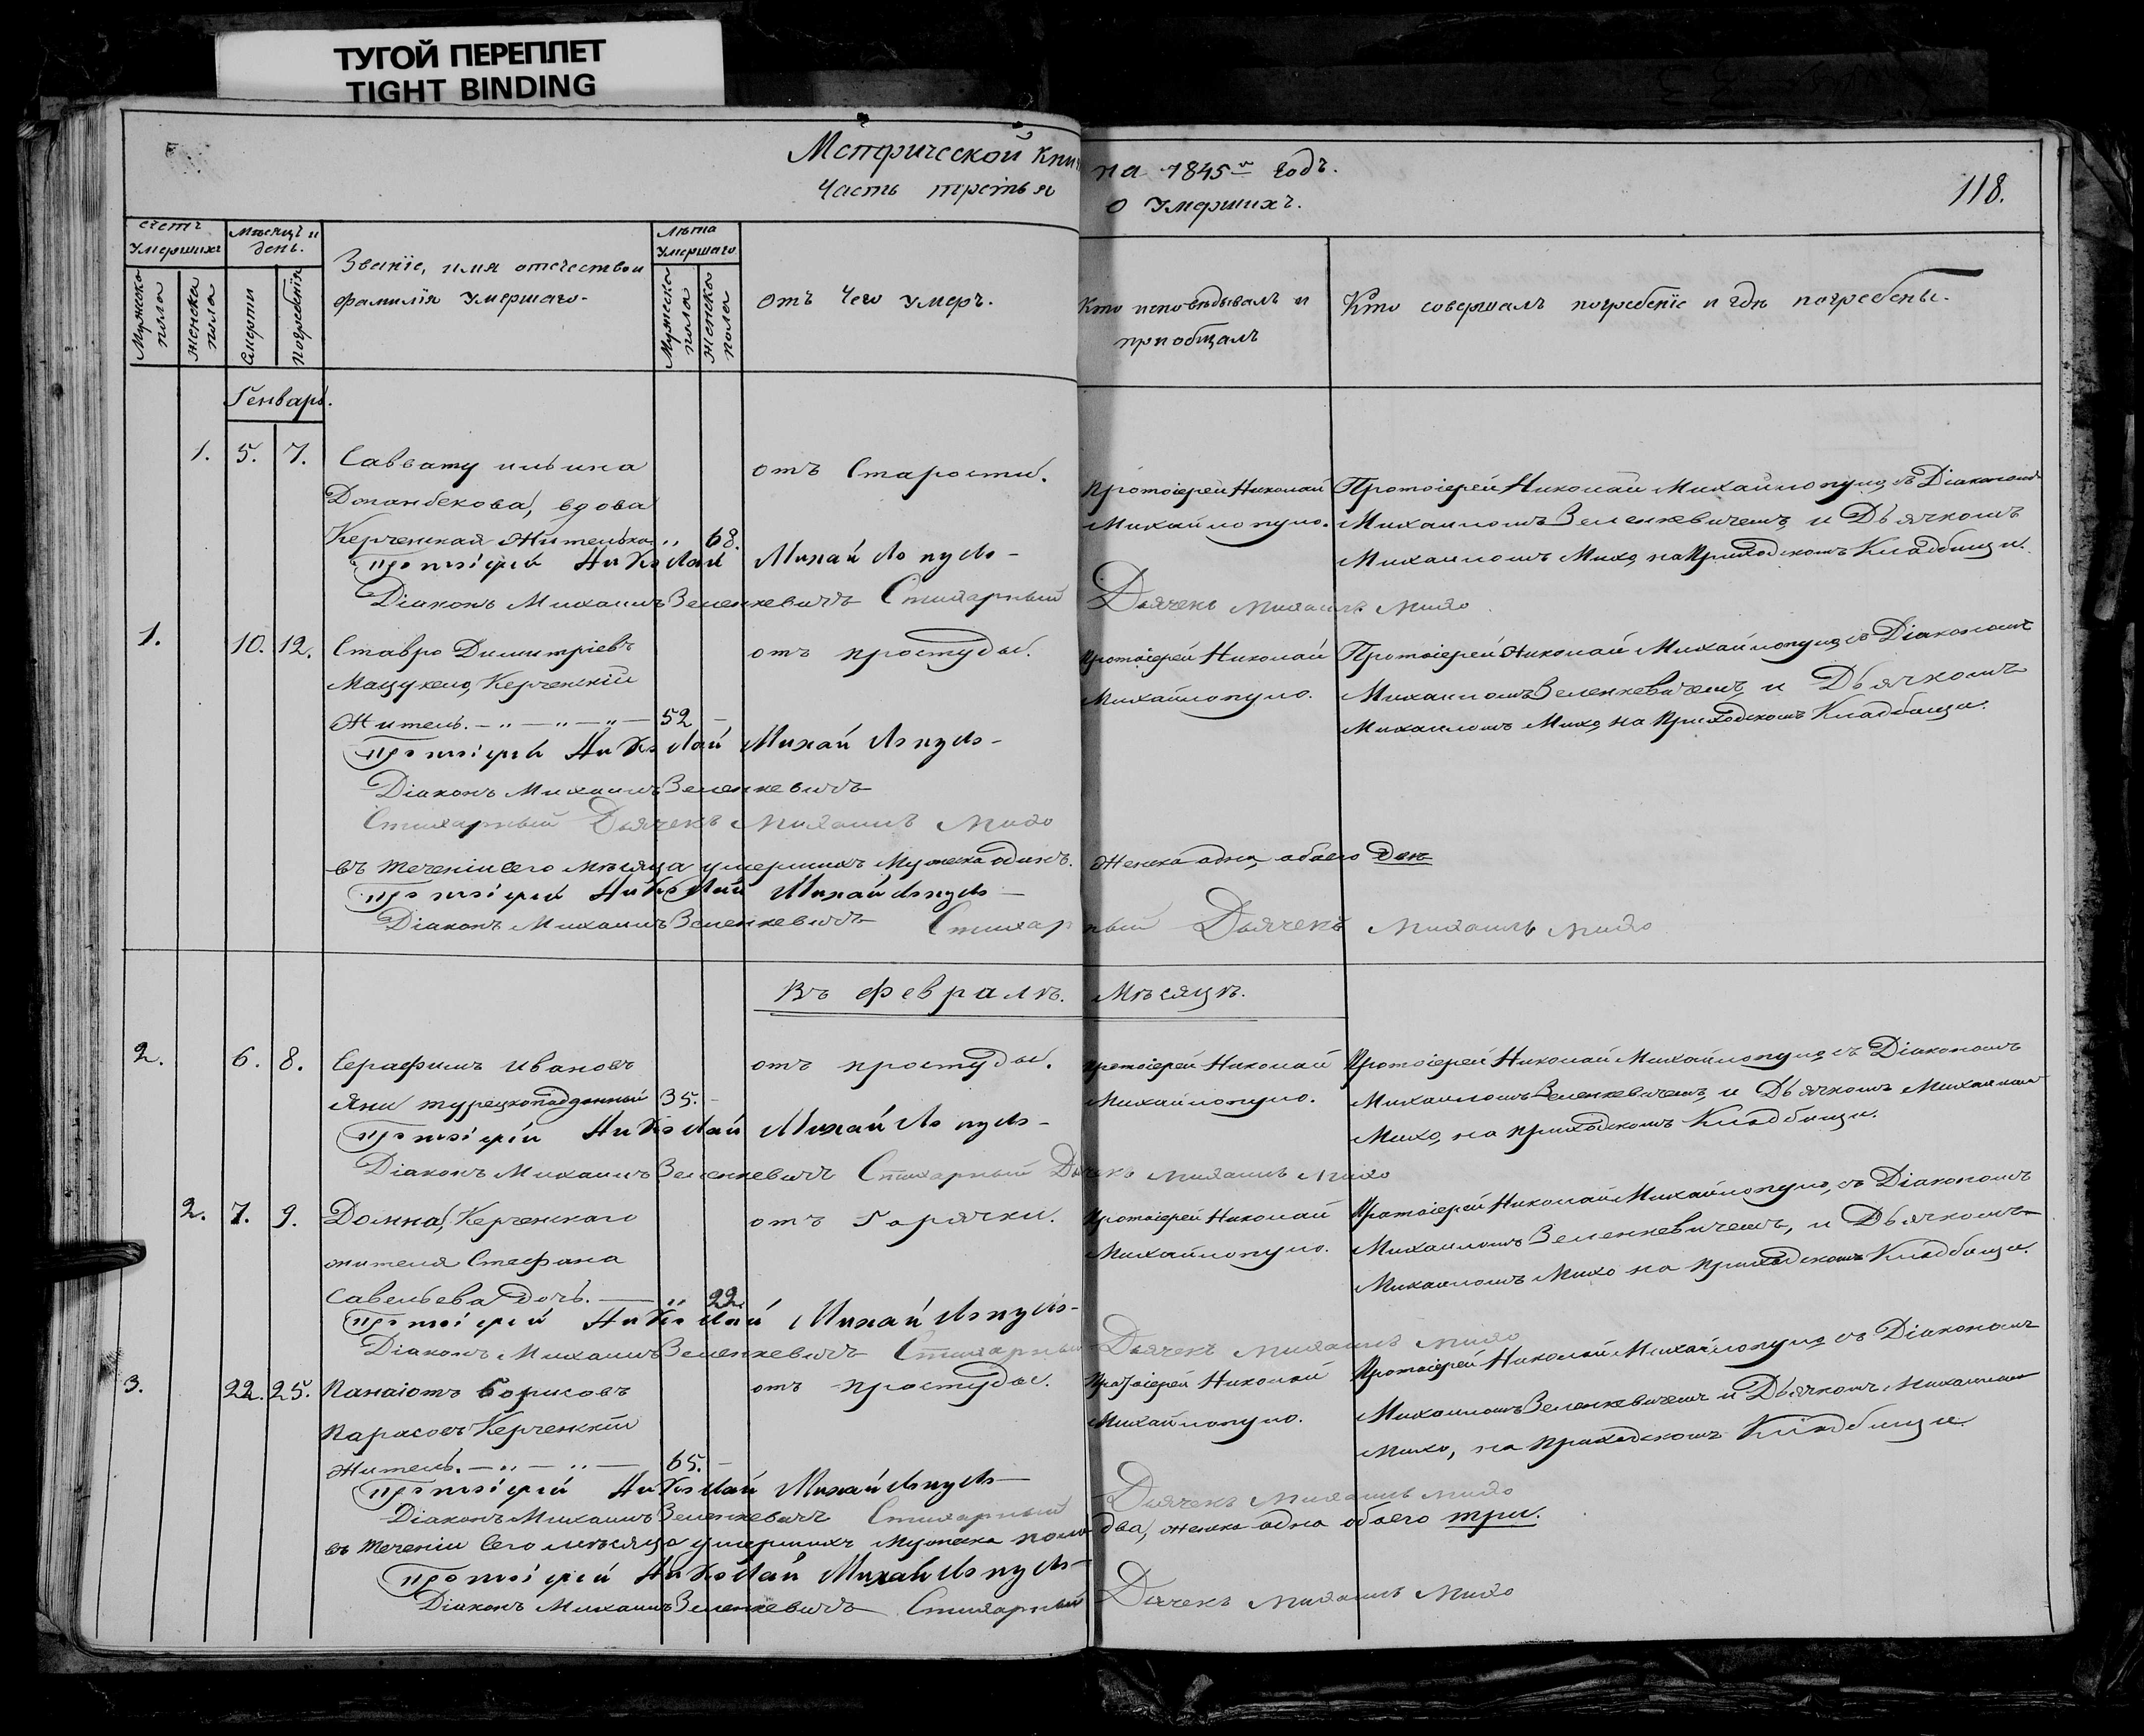 ТУГОЙ ПЕРЕПЛЕТ
TIGHT BINDING
Метрической Кни на 1845й годъ.
Часть третья о умершихъ.
118.
счетъ умершихъ
Мужеска пола
женска пола
мѣсяцъ и день.
Смерти
погребенія
Званіе, имя отечество и фамилія умершаго.
лѣта умершаго
Мужеска пола
женска пола
отъ чего умеръ.
Кто исповѣдывалъ и пріобщалъ
Кто совершалъ погребеніе и гдѣ погребены.
Генварь.
1. 5. 7. Саввату ильина отъ Старости. Протоіерей Николай Протоіерей Николай Михайлопуло, съ Діакономъ
вдова Михайлопуло. Михаиломъ Зеленкевичемъ, и Дьячкомъ
Керченская Жителька „ 68. Михаиломъ Михо, на Приходскомъ Кладбищи.
Протоіерей Николай Михайлопуло
Діаконъ Михаилъ Зеленкевичъ Стихарный Дьячекъ Михаилъ Михо
1. 10. 12. Ставро Димитріевъ отъ простуды. Протоіерей Николай Протоіерей Николай Михайлопуло, съ Діакономъ
Мацукело, Керченскій Михайлопуло. Михаиломъ Зеленкевичемъ, и Дьячкомъ
Житель. — „ — „ — „ — 52 — Михаиломъ Михо, на Приходскомъ Кладбищи.
Протоіерей Николай Михайлопуло
Діаконъ Михаилъ Зеленкевичъ
Стихарный Дьячекъ Михаилъ Михо
въ теченіи сего мѣсяца умершихъ Мужеска одинъ. Женска одна, обоего два
Протоіерей Николай Михайлопуло
Діаконъ Михаилъ Зеленкевичъ Стихарный Дьячекъ Михаилъ Михо
Въ февралѣ. Мѣсяцѣ.
2. 6. 8. Серафимъ Ивановъ отъ простуды. Протоіерей Николай Протоіерей Николай Михайлопуло, съ Діакономъ
Яни турецкоподданный 35. — Михайлопуло. Михаиломъ Зеленкевичемъ, и Дьячкомъ Михаиломъ
Михо, на приходскомъ Кладбищи.
Протоіерей Николай Михайлопуло
Діаконъ Михаилъ Зеленкевичъ Стихарный Дьячекъ Михаилъ Михо
2. 7. 9. Домна, Керченскаго отъ Горячки. Протоіерей Николай Протоіерей Николай Михайлопуло, съ Діакономъ
жителя Стефана Михайлопуло. Михаиломъ Зеленкевичемъ, и Дьячкомъ
Савельева Дочь. — „ 22. Михаиломъ Михо на Приходскомъ Кладбищи.
Протоіерей Николай Михайлопуло
Діаконъ Михаилъ Зеленкевичъ Стихарный Дьячекъ Михаилъ Михо
3. 22. 25. Панаіотъ Борисовъ отъ простуды. Протоіерей Николай Протоіерей Николай Михайлопуло, съ Діакономъ
Парасовъ Керченскій Михайлопуло. Михаиломъ Зеленкевичемъ и Дьячкомъ Михаиломъ
Житель. — „ — „ — 65. — Михо, на приходскомъ Кладбищи.
Протоіерей Николай Михайлопуло
Діаконъ Михаилъ Зеленкевичъ Стихарный Дьячекъ Михаилъ Михо
въ теченіи Сего мѣсяца умершихъ Мужеска пола два, женска одна обоего три.
Протоіерей Николай Михайлопуло
Діаконъ Михаилъ Зеленкевичъ Стихарный Дьячекъ Михаилъ Михо